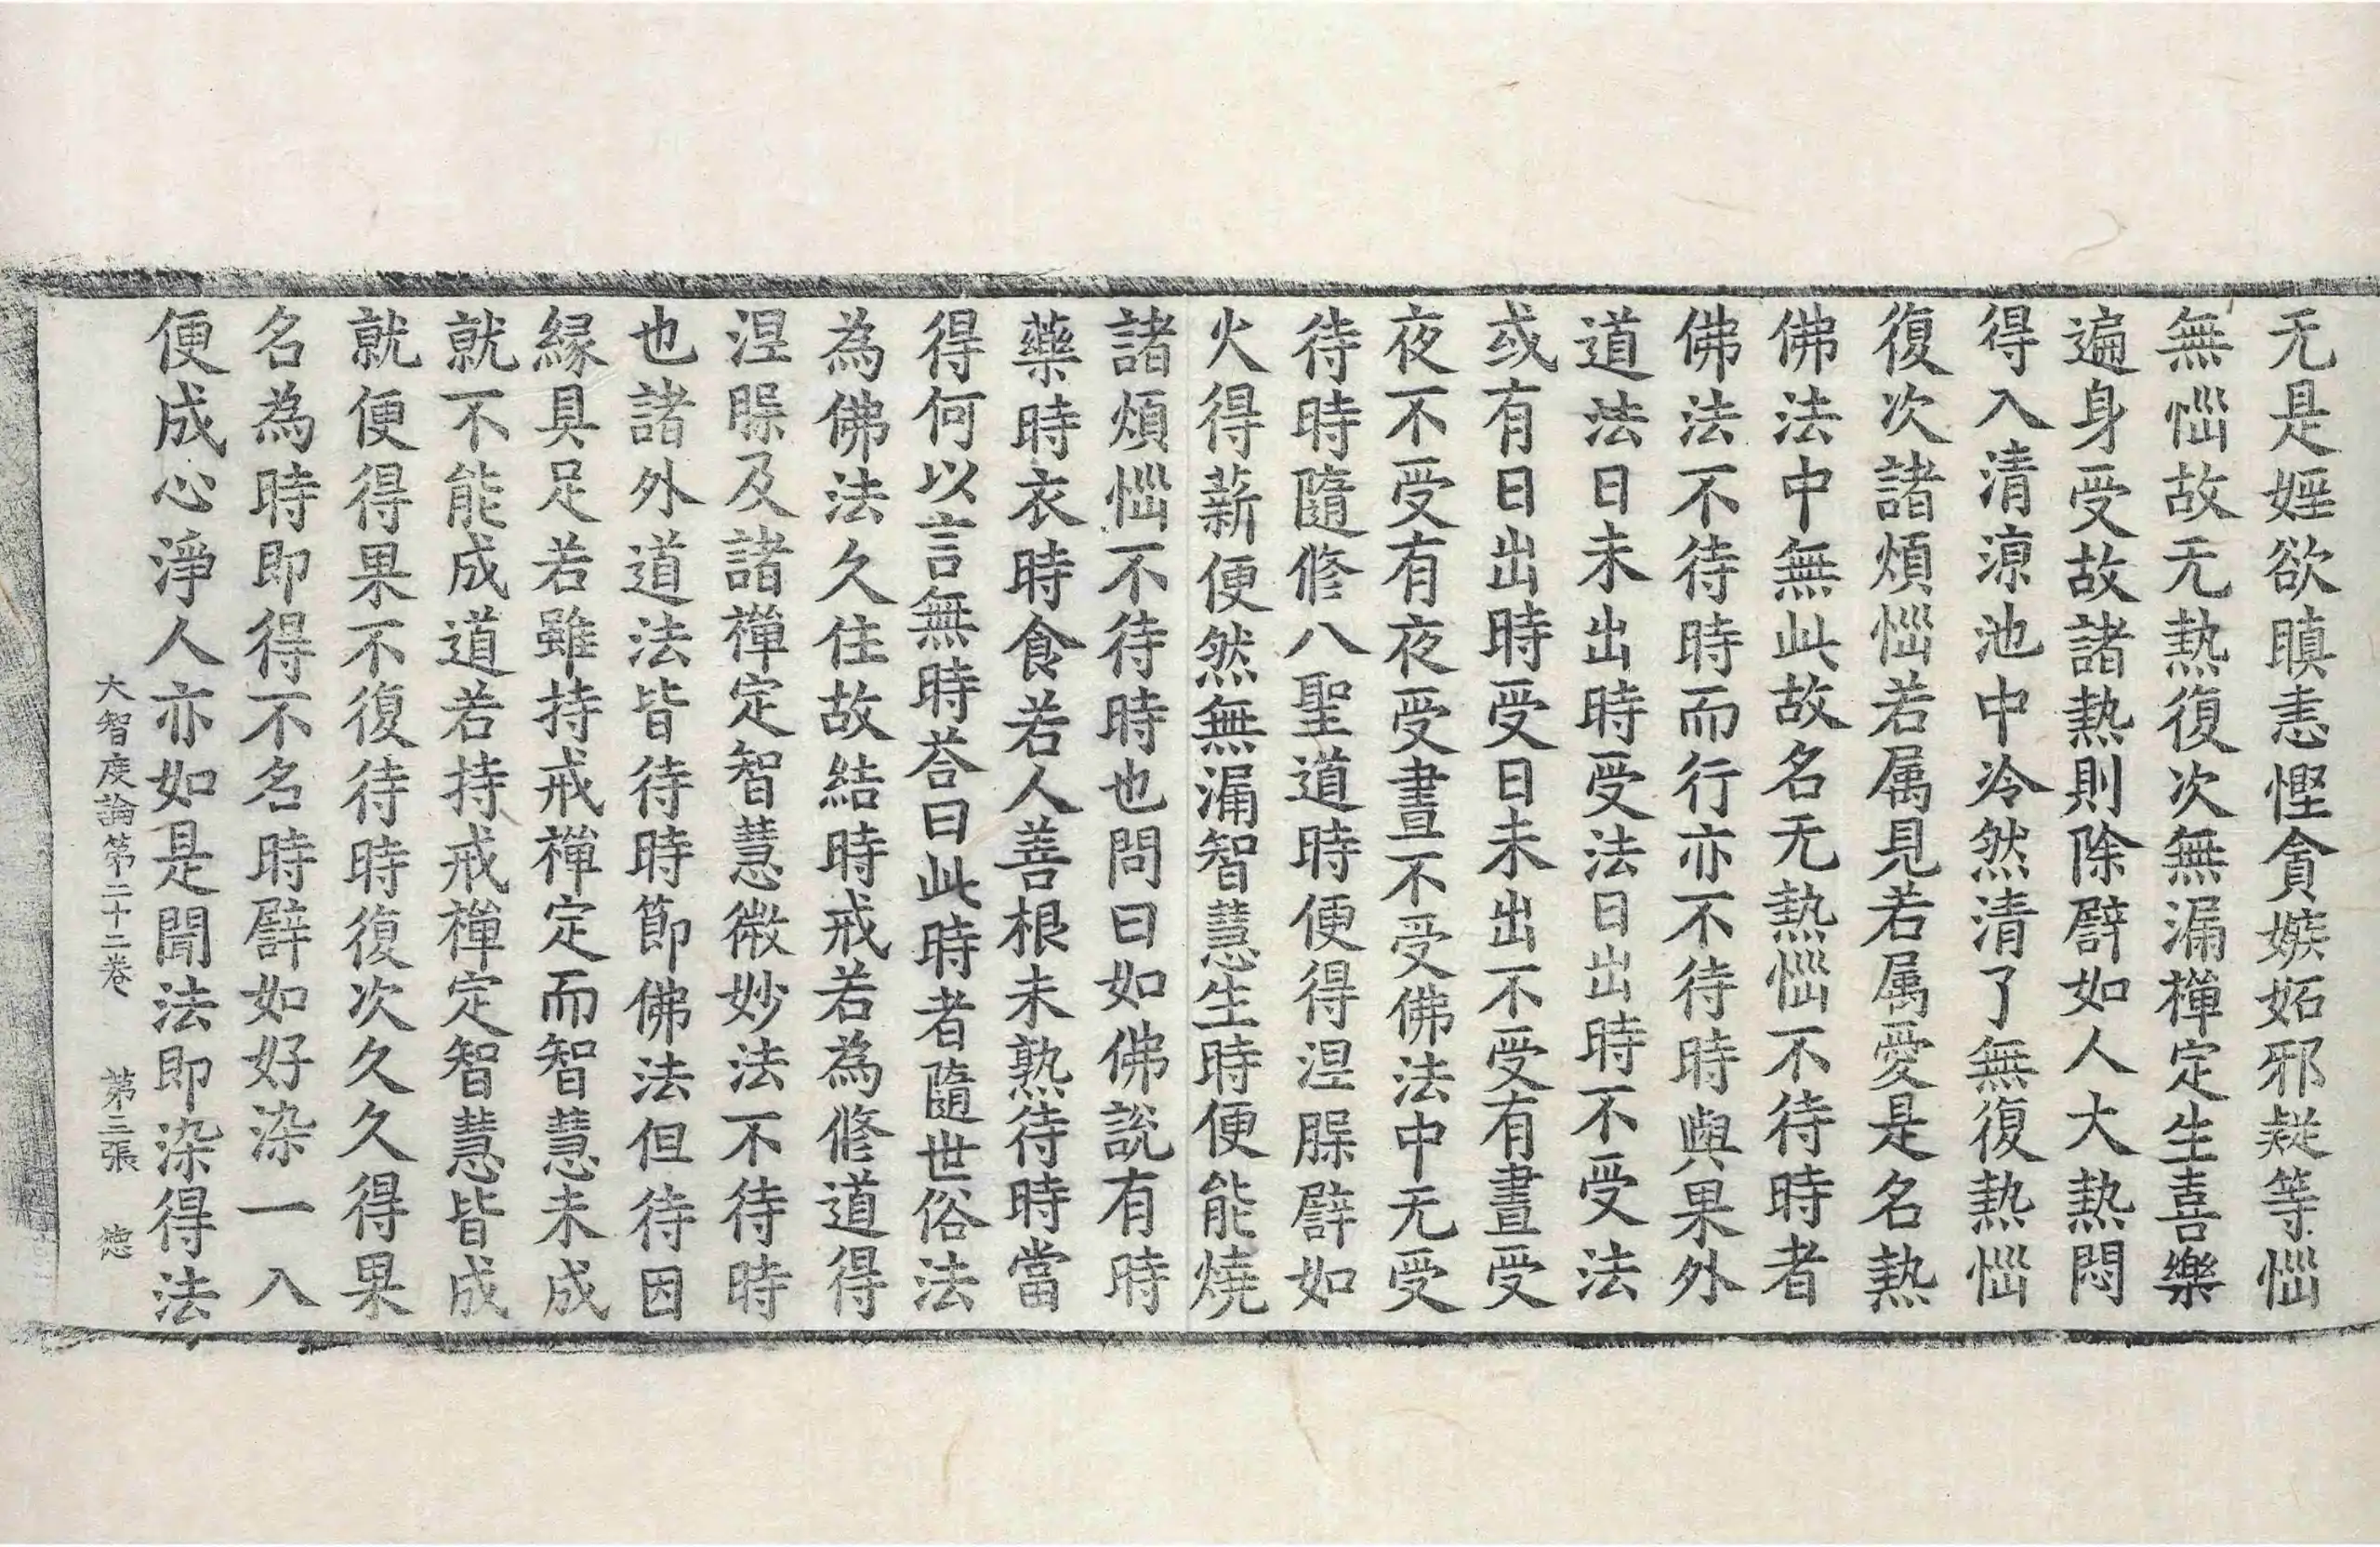 无是婬欲瞋恚慳貪嫉妬邪疑等惱
無惱故无熱復次無漏禪定生喜樂
遍身受故諸熱則除譬如人大熱悶
得入清涼池中冷然清了無復熱惱
復次諸煩惱若属見若属愛是名熱
佛法中無此故名无熱惱不待時者
佛法不待時而行亦不待時與果外
道法日未出時受法日出時不受法
或有日出時受日未出不受有晝受
夜不受有夜受晝不受佛法中无受
待時隨修八聖道時便得涅槃譬如
火得薪便然無漏智慧生時便能燒
諸煩惱不待時也問曰如佛說有時
藥時衣時食若人善根未熟待時當
得何以言無時荅曰此時者隨世俗法
為佛法久住故結時戒若為修道得
涅槃及諸禪定智慧微妙法不待時
也諸外道法皆待時節佛法但待因
緣具足若雖持戒禪定而智慧未成
就不能成道若持戒禪定智慧皆成
就便得果不復待時復次久久得果
名為時即得不名時譬如好染一入
便成心淨人亦如是聞法即染得法
大智度論第二十二卷 第三張 德